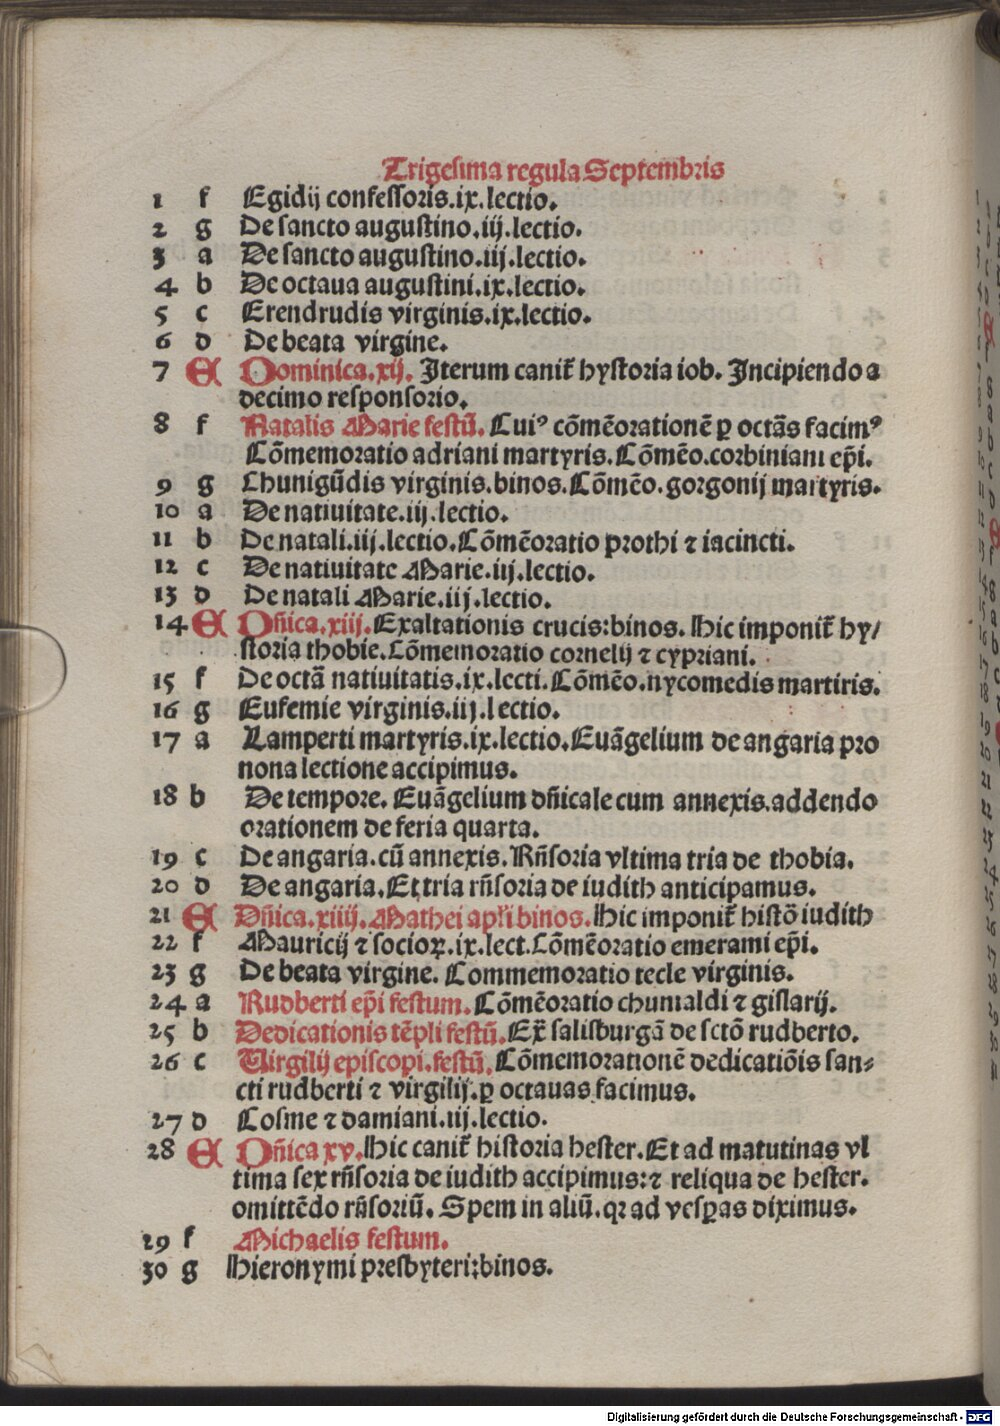 Trigesima regula Septembris
1 f Egidij confessoris.ix.lectio.
2 g De sancto augustino.iij.lectio.
3 a De sancto augustino.iij.lectio.
4 b De octaua augustini.ix.lectio.
5 c Erendrudis virginis.ix.lectio.
6 d De beata virgine.
7 E Dominica.xij. Iterum canit̃ hystoria iob. Incipiendo a
decimo responsorio.
8 f Natalis Marie festū. Cuiꝰ cōmēorationē ꝑ octās facimꝰ
Cōmemoratio adriani martyris. Cōmēo.corbiniani ep̄i.
9 g Chunigūdis virginis.binos. Cōmēo.gorgonij martyris.
10 a De natiuitate.iij.lectio.
11 b De natali.iij.lectio.Cōmēoratio prothi ⁊ iacincti.
12 c De natiuitate Marie.iij.lectio.
13 d De natali Marie.iij.lectio.
14 E Dñica.xiij.Exaltationis crucis:binos. Hic imponit̃ hy/
storia thobie.Cōmemoratio cornelij ⁊ cypriani.
15 f De octā natiuitatis.ix.lecti.Cōmēo.nycomedis martiris.
16 g Eufemie virginis.iij.lectio.
17 a Lamperti martyris.ix.lectio.Euāgelium de angaria pro
nona lectione accipimus.
18 b De tempore. Euāgelium dñicale cum annexis.addendo
orationem de feria quarta.
19 c De angaria.cū annexis.Rñsoria vltima tria de thobia.
20 d De angaria.Et tria rñsoria de iudith anticipamus.
21 E Dñica.xiiij.Mathei apłi binos.Hic imponit̃ histō iudith
22 f Mauricij ⁊ socioꝝ.ix.lect.Cōmēoratio emerami ep̄i.
23 g De beata virgine. Commemoratio tecle virginis.
24 a Rudberti ep̄i festum.Cōmēoratio chunialdi ⁊ gislarij.
25 b Dedicationis tēpli festū.Ex̄ salisburgā de sctō rudberto.
26 c Virgilij episcopi.festū.Cōmemorationē dedicatiōis san-
cti rudberti ⁊ virgilij.ꝑ octauas facimus.
27 d Cosme ⁊ damiani.iij.lectio.
28 E Dñica xv.Hic canit̃ historia hester.Et ad matutinas vl
tima sex rñsoria de iudith accipimus:⁊ reliqua de hester.
omittēdo rñsoriū. Spem in aliū.qꝛ ad vesꝑas diximus.
29 f Michaelis festum.
30 g Hieronymi presbyteri:binos.
Digitalisierung gefördert durch die Deutsche Forschungsgemeinschaft - DFG